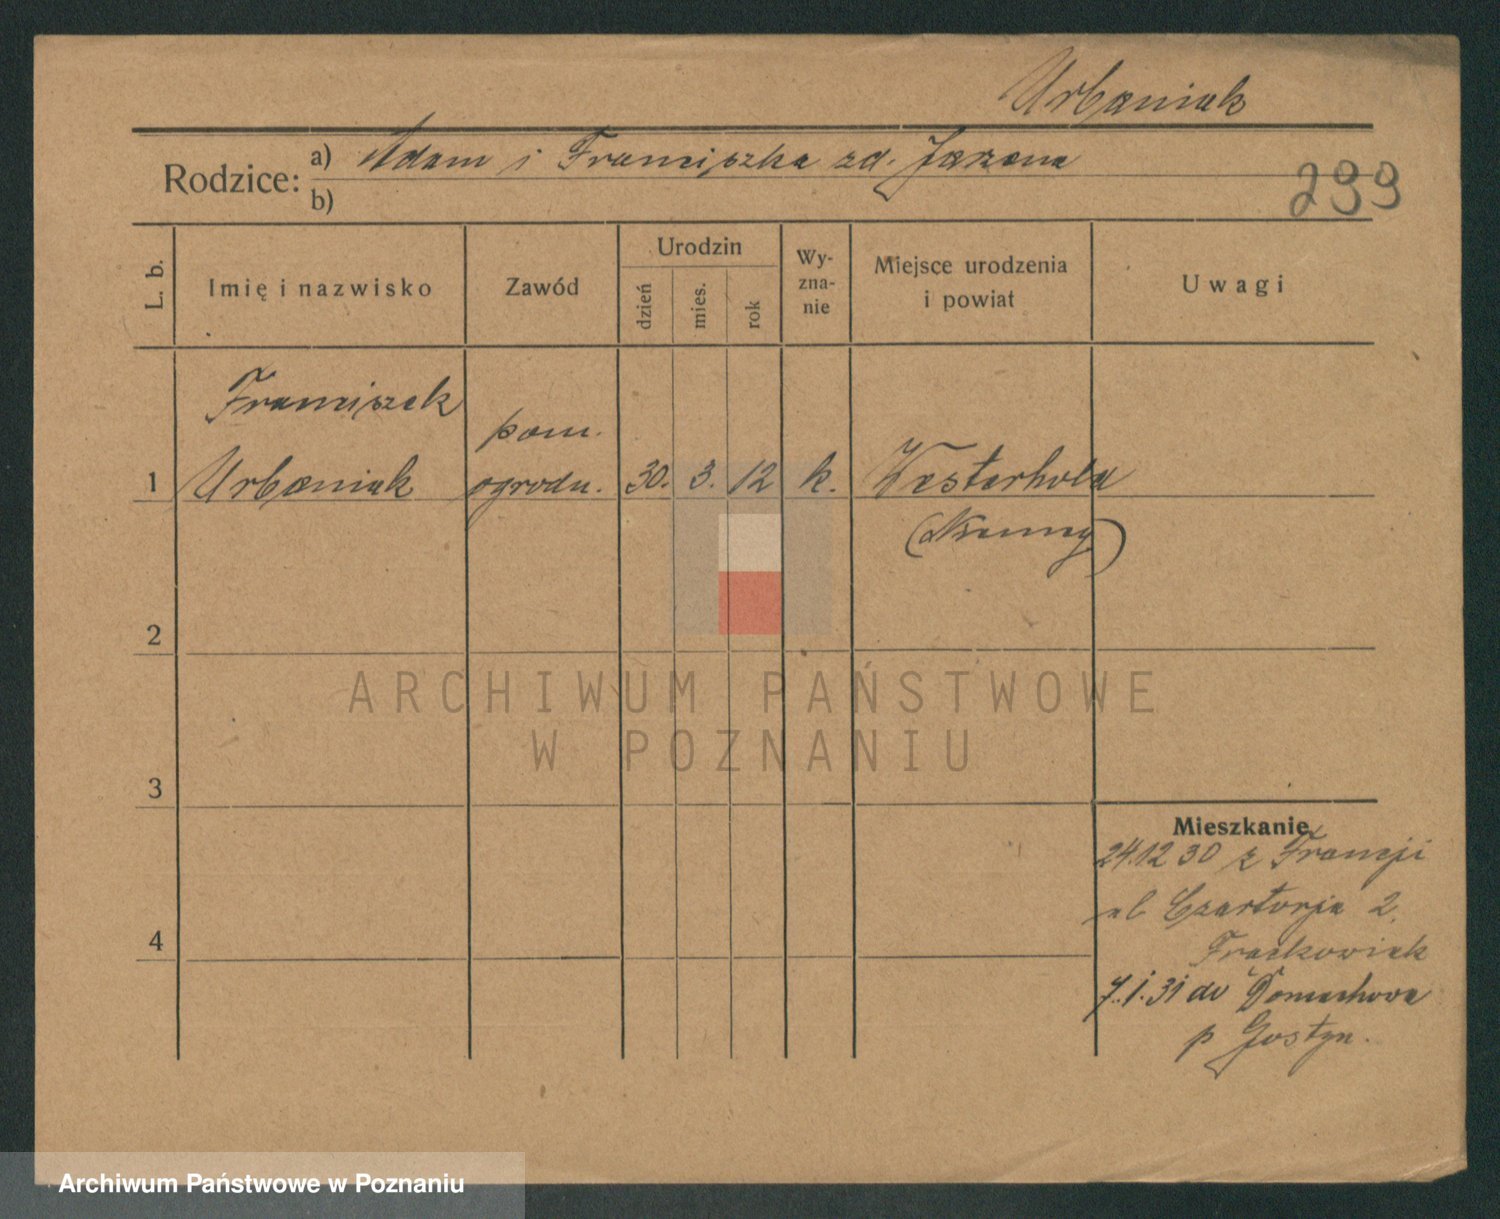 Urbaniak
Rodzice:
a) Adam i Franciszka zd. Jarzena
b)
299
L. b.
Imię i nazwisko
Zawód
Urodzin
dzień
mies.
rok
Wy-
zna-
nie
Miejsce urodzenia
i powiat
Uwagi
Franciszek
pom.
1 Urbaniak ogrodn. 30. 3. 12 k. Westerholz
(Niemcy)
2
ARCHIWUM PAŃSTWOWE
W POZNANIU
3
Mieszkanie
24.12 30 z Francji
ul Czartorja 2.
Frackowiak
4
7.1.31 do Domachowa
p Gostyn.
Archiwum Państwowe w Poznaniu